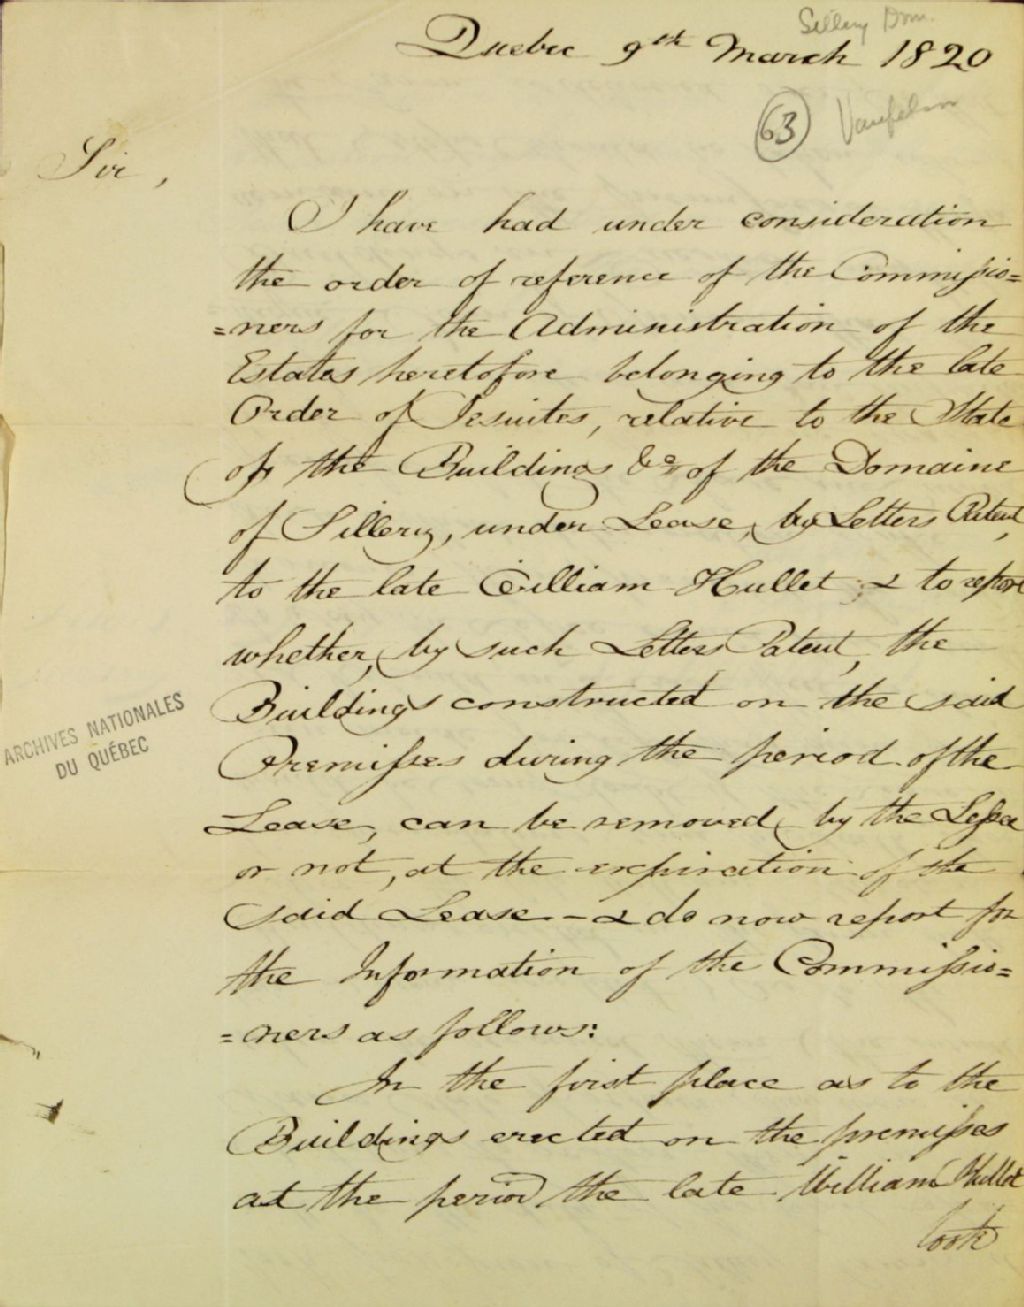 Sillery Dom.
Quebec 9th March 1820
63 Vanfelson
Sir,
I have had under consideration
the order of reference of the Commissio=
=ners for the Administration of the
Estates heretofore belonging to the late
Order of Jesuites, relative to the State
of the Buildings &c. of the Domaine
of Sillery, under Lease, by Letters Patent,
to the late William Hullet; & to report
whether, by such Letters Patent, the
Buildings constructed on the said
Premisses during the period of the
Lease, can be removed by the Lessee
or not, at the expiration of the
said Lease - & do now report for
the Information of the Commissio=
=ners as follows:
In the first place as to the
Buildings erected on the premisses
at the period the late William Hullet
took
ARCHIVES NATIONALES
DU QUÉBEC